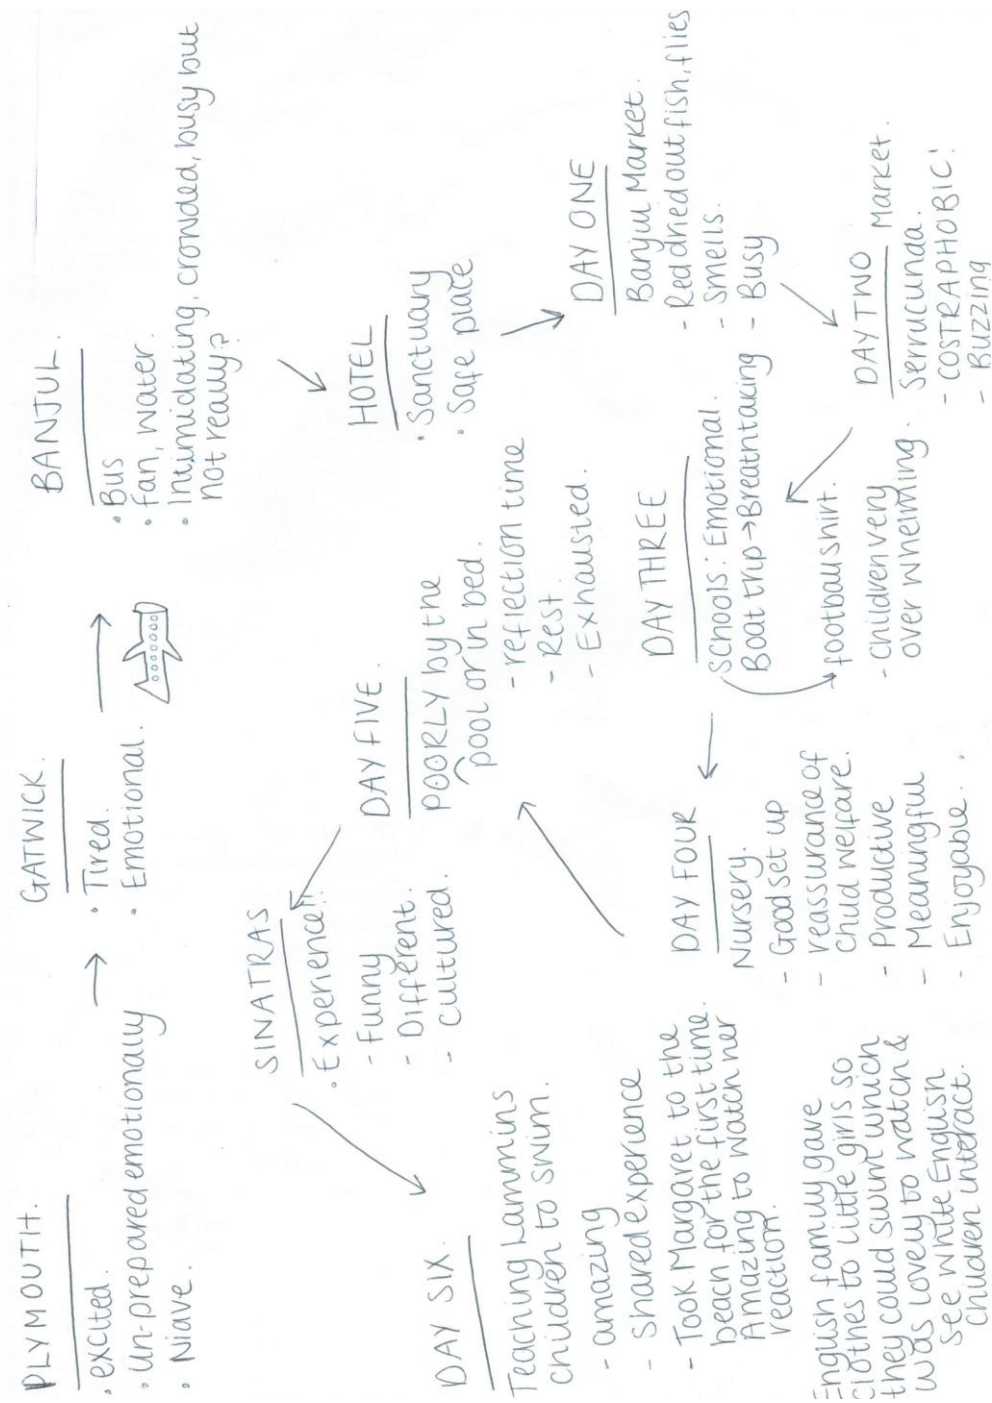 PLYMOUTH.
• excited.
• un-prepared emotionally
• Niave.
GATWICK.
• Tired.
• Emotional.
BANJUL.
• Bus
• Fan, water.
• Intimidating, crowded, busy but
not really?
HOTEL
• Sanctuary
• Safe place
DAY ONE
Banjul Market.
- Red dried out fish, flies
- Smells.
- Busy
DAY TWO
Market.
Serrucunda.
- COSTRAPHOBIC!
- Buzzing
DAY THREE
Schools: Emotional.
Boat trip → Breathtaking
football shirt.
- Children very
over whelming.
DAY FOUR
Nursery.
- Good set up
- reassurance of
child welfare.
- Productive
- Meaningful
- Enjoyable.
DAY FIVE.
POORLY by the
pool or in bed.
- reflection time
- Rest.
- Exhausted.
SINATRAS
• Experience!!
- Funny
- Different.
- cultured.
DAY SIX
Teaching Lammins
children to swim.
- amazing
- shared experience
- Took Margaret to the
beach for the first time.
Amazing to watch her
reaction.
English family gave
clothes to little girls so
they could swim which
was lovely to watch &
see white English
children interact.